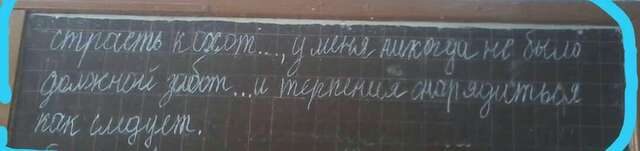 страсть к охот..., у меня никогда не было
должной забот... и терпения снарядиться
как следует.